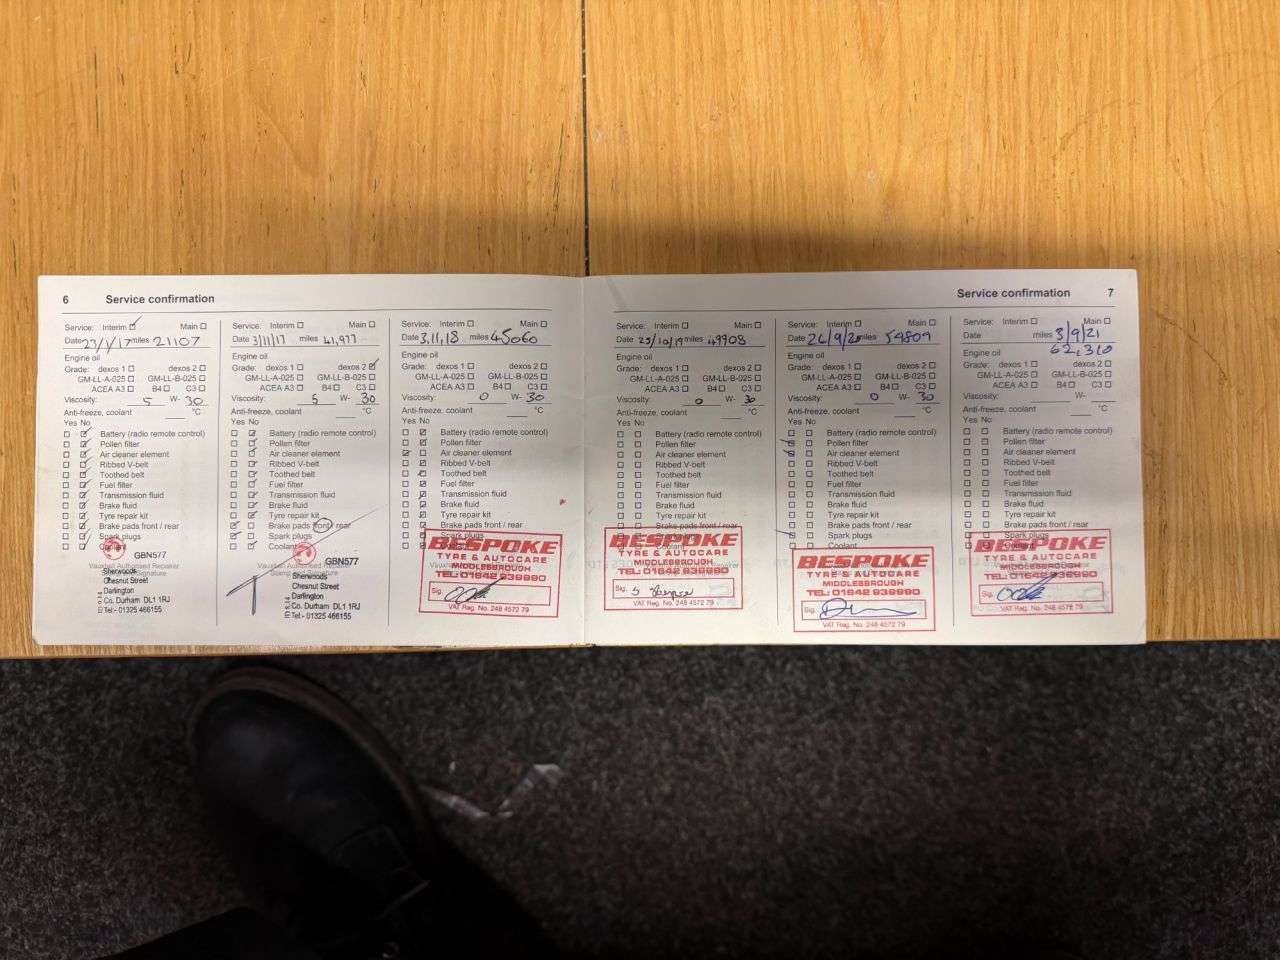 6 Service confirmation
Service: Interim Main
Date 23/1/17 miles 21107
Engine oil
Grade: dexos 1 dexos 2
GM-LL-A-025 GM-LL-B-025
ACEA A3 B4 C3
Viscosity: 5 W- 30
Anti-freeze, coolant °C
Yes No
Battery (radio remote control)
Pollen filter
Air cleaner element
Ribbed V-belt
Toothed belt
Fuel filter
Transmission fluid
Brake fluid
Tyre repair kit
Brake pads front / rear
Spark plugs
Coolant
GBN577
Vauxhall Authorised Repairer
Stamp and Signature
Sherwoods
Chesnut Street
Darlington
Co. Durham DL1 1RJ
Tel - 01325 466155
Service: Interim Main
Date 3/11/17 miles 41,977
Engine oil
Grade: dexos 1 dexos 2
GM-LL-A-025 GM-LL-B-025
ACEA A3 B4 C3
Viscosity: 5 W- 30
Anti-freeze, coolant °C
Yes No
Battery (radio remote control)
Pollen filter
Air cleaner element
Ribbed V-belt
Toothed belt
Fuel filter
Transmission fluid
Brake fluid
Tyre repair kit
Brake pads front / rear
Spark plugs
Coolant
GBN577
Vauxhall Authorised Repairer
Stamp and Signature
Sherwoods
Chesnut Street
Darlington
Co. Durham DL1 1RJ
Tel - 01325 466155
Service: Interim Main
Date 3,11,18 miles 45060
Engine oil
Grade: dexos 1 dexos 2
GM-LL-A-025 GM-LL-B-025
ACEA A3 B4 C3
Viscosity: 0 W- 30
Anti-freeze, coolant °C
Yes No
Battery (radio remote control)
Pollen filter
Air cleaner element
Ribbed V-belt
Toothed belt
Fuel filter
Transmission fluid
Brake fluid
Tyre repair kit
Brake pads front / rear
Spark plugs
BESPOKE
TYRE & AUTOCARE
MIDDLESBROUGH
TEL: 01642 939990
Sig.
VAT Reg. No. 248 4572 79
Service confirmation 7
Service: Interim Main
Date 25/10/19 miles 49908
Engine oil
Grade: dexos 1 dexos 2
GM-LL-A-025 GM-LL-B-025
ACEA A3 B4 C3
Viscosity: 0 W- 30
Anti-freeze, coolant °C
Yes No
Battery (radio remote control)
Pollen filter
Air cleaner element
Ribbed V-belt
Toothed belt
Fuel filter
Transmission fluid
Brake fluid
Tyre repair kit
Brake pads front / rear
Spark plugs
Coolant
BESPOKE
TYRE & AUTOCARE
MIDDLESBROUGH
TEL: 01642 939990
Sig.
VAT Reg. No. 248 4572 79
Service: Interim Main
Date miles 54809
Engine oil
Grade: dexos 1 dexos 2
GM-LL-A-025 GM-LL-B-025
ACEA A3 B4 C3
Viscosity: 0 W- 30
Anti-freeze, coolant °C
Yes No
Battery (radio remote control)
Pollen filter
Air cleaner element
Ribbed V-belt
Toothed belt
Fuel filter
Transmission fluid
Brake fluid
Tyre repair kit
Brake pads front / rear
Spark plugs
Coolant
BESPOKE
TYRE & AUTOCARE
MIDDLESBROUGH
TEL: 01642 939990
Sig.
VAT Reg. No. 248 4572 79
Service: Interim Main
Date miles 3/9/21
Engine oil 62,310
Grade: dexos 1 dexos 2
GM-LL-A-025 GM-LL-B-025
ACEA A3 B4 C3
Viscosity: W-
Anti-freeze, coolant °C
Yes No
Battery (radio remote control)
Pollen filter
Air cleaner element
Ribbed V-belt
Toothed belt
Fuel filter
Transmission fluid
Brake fluid
Tyre repair kit
Brake pads front / rear
Spark plugs
Coolant
BESPOKE
TYRE & AUTOCARE
MIDDLESBROUGH
TEL: 01642 939990
Sig.
VAT Reg. No. 248 4572 79